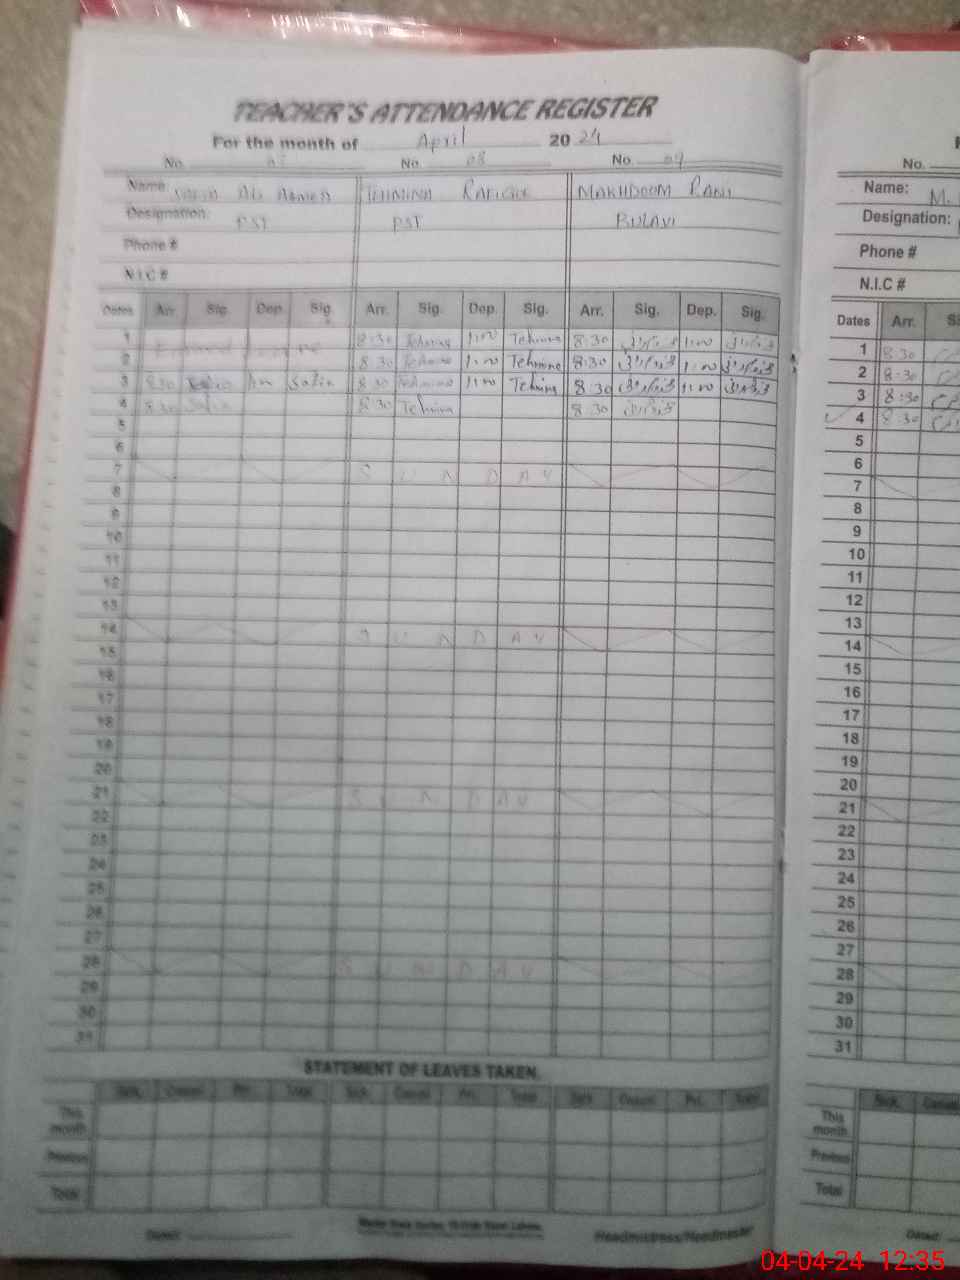 TEACHER'S ATTENDANCE REGISTER
For the month of April 20 24
No. No. 08 No. 09 No.
Name: Ali Ahmed TEHMINA RAFIQUE MAKHDOOM RANI Name: M.
Designation: PST PST Designation:
Phone # Phone #
N.I.C # N.I.C #
Dates Arr. Sig. Dep. Sig. Arr. Sig. Dep. Sig. Arr. Sig. Dep. Sig. Dates Arr.
1 8:30 Tehmina 1:00 Tehmina 8:30 1:00 1 8:30
2 8:30 Tehmina 1:00 Tehmina 8:30 1:00 2 8:30
3 8:30 Safia Safia 8:30 Tehmina 1:00 Tehmina 8:30 1:00 3 8:30
4 8:30 Safia 8:30 Tehmina 8:30 4 8:30
5 5
6 6
7 SUNDAY 7
8 8
9 9
10 10
11 11
12 12
13 13
14 SUNDAY 14
15 15
16 16
17 17
18 18
19 19
20 20
21 SUNDAY 21
22 22
23 23
24 24
25 25
26 26
27 27
28 SUNDAY 28
29 29
30 30
31 31
STATEMENT OF LEAVES TAKEN.
Sick. Casual Pri. Total Sick. Casual Pri. Total Sick. Casual Pri. Total Sick. Casual
This month This month
Previous Previous
Total Total
Dated: Headmistress/Headmaster Dated:
04-04-24 12:35